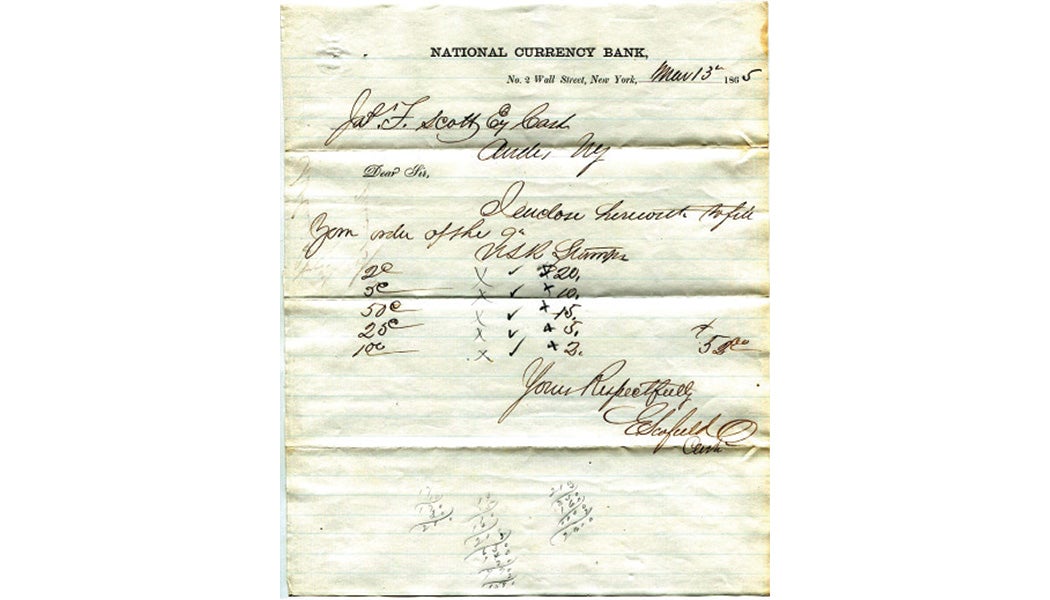 NATIONAL CURRENCY BANK,
No. 2 Wall Street, New York, Mar 13" 1865
Jas. F. Scott Cash
Andes, Ny
Dear Sir,
I enclose herewith to fill
Your order of the 9"
USR Stamps
2c x ✓ $20.
5c x ✓ x 10.
50c x ✓ x 15.
25c x ✓ x 5.
10c x ✓ x 2. 52.00
Yours Respectfully
E Scofield
Cash